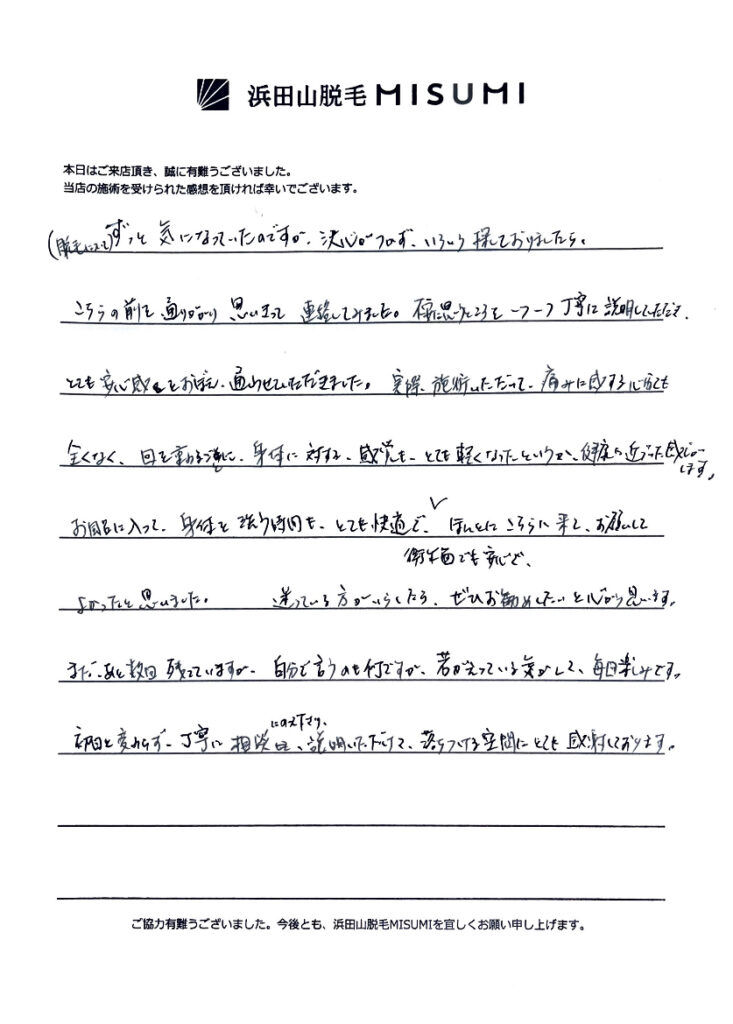 浜田山脱毛 MISUMI
本日はご来店頂き、誠に有難うございました。
当店の施術を受けられた感想を頂ければ幸いでございます。
(脱毛について)ずっと気になっていたのですが、決心がつかず、いろいろ探しておりましたら、
こちらの前を通りがかり思いきって連絡してみました。不安に思うところを一つ一つ丁寧に説明していただき、
とても安心感をおぼえ、通わせていただきました。実際、施術いただいて、痛みに対する心配も
全くなく、回を重ねる毎に、身体に対する感覚も、とても軽くなったというか、健康に近づいた感じがします。
お風呂に入って、身体を洗う時間も、とても快適で、ほんとにこちらに来て、お願いして
衛生面でも安心で、
よかったと思いました。 迷っている方がいらしたら、ぜひお勧めしたいと心から思います。
まだ、あと数回残っていますが、自分で言うのも何ですが、若がえっている気がして、毎日楽しみです。
初回と変わらず、丁寧に相談にのって下さり、説明いただけて、落ちつける空間にとても感謝しております。
ご協力有難うございました。今後とも、浜田山脱毛MISUMIを宜しくお願い申し上げます。